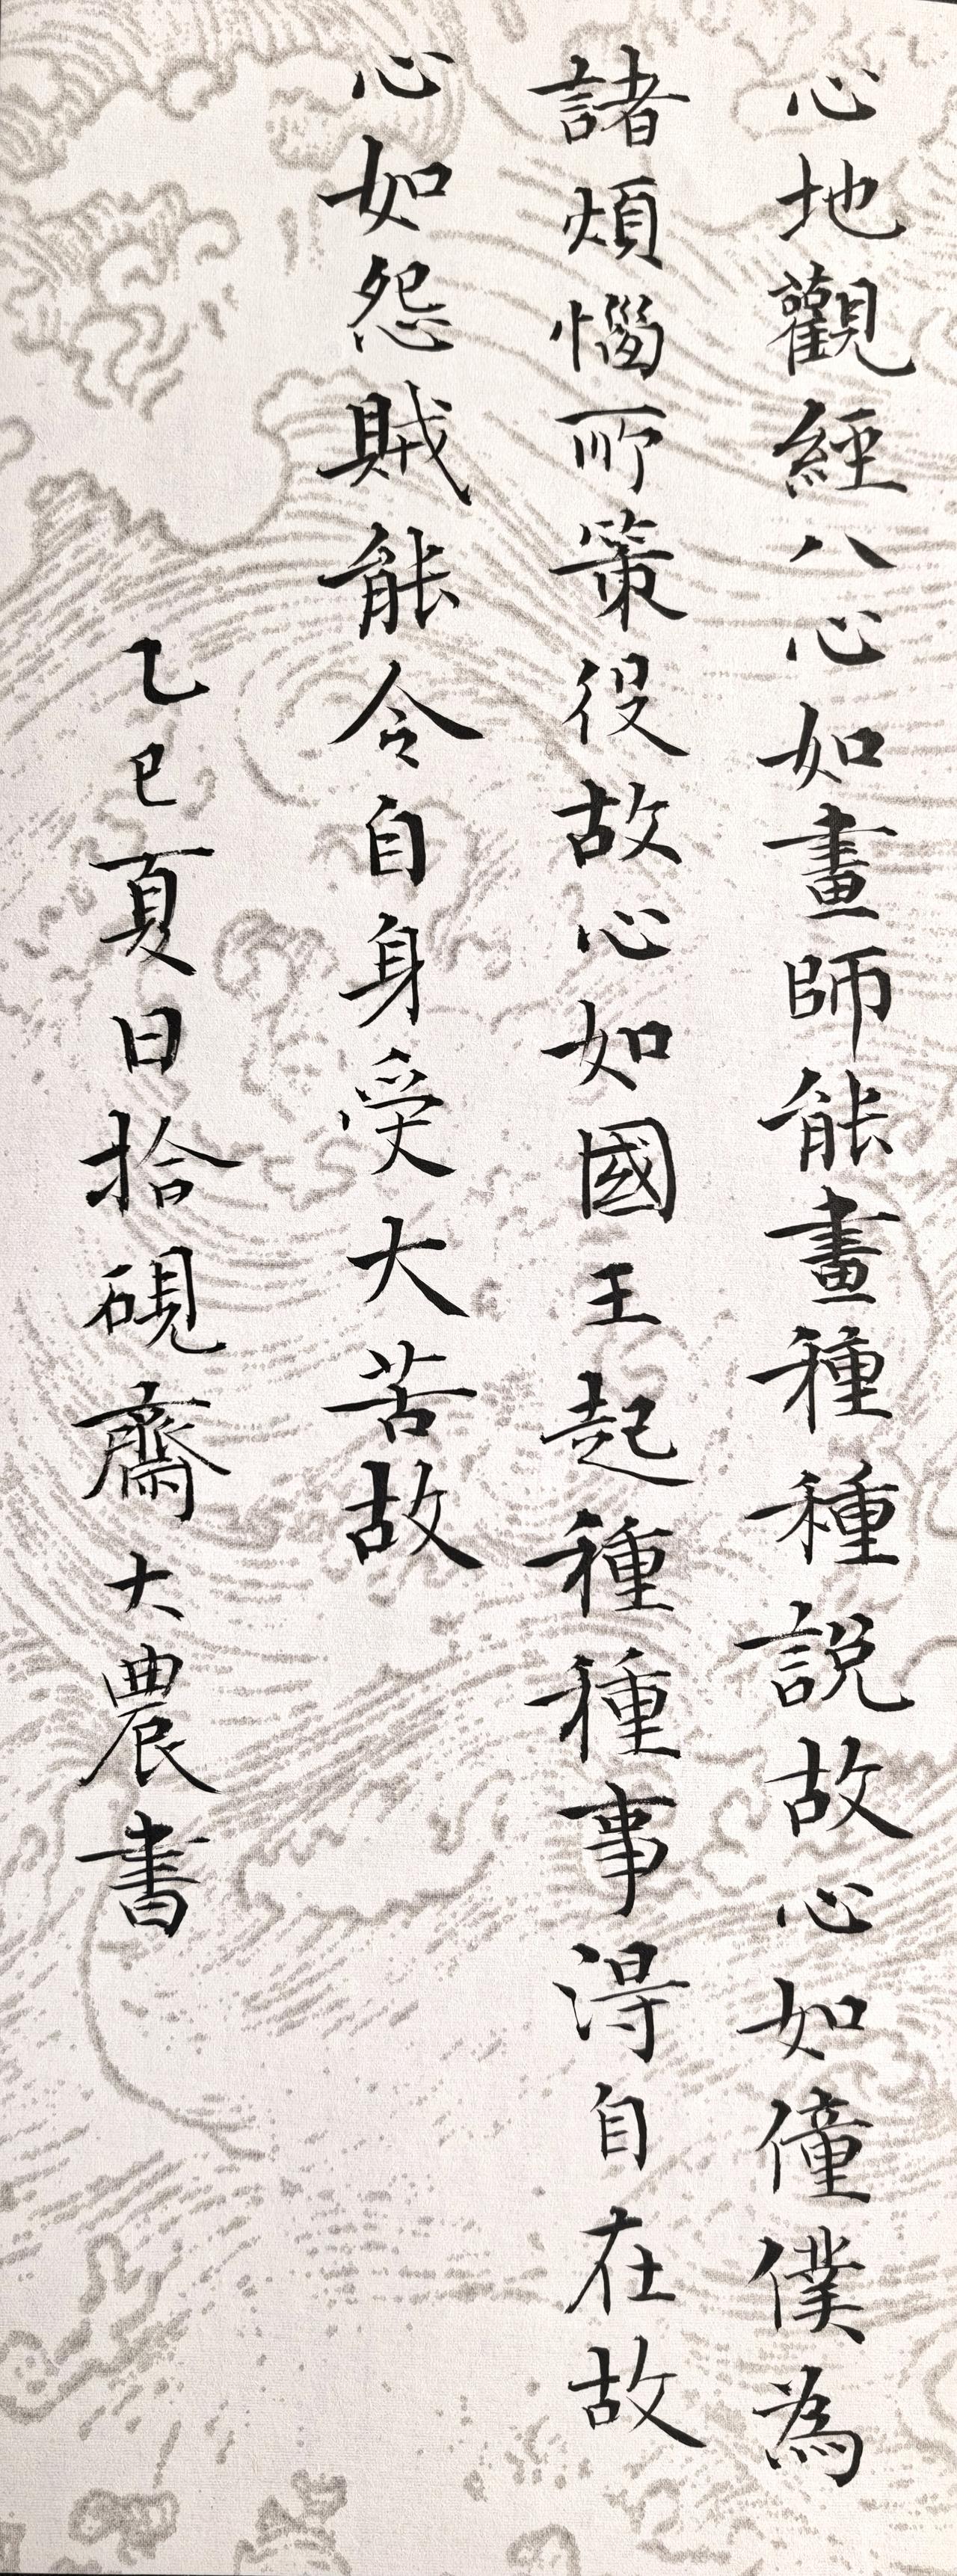 心地觀經八心如畫師能畫種種說故心如僮僕為
諸煩惱所策役故心如國王起種種事得自在故
心如怨賊能令自身受大苦故
乙巳夏日拾硯齋大農書